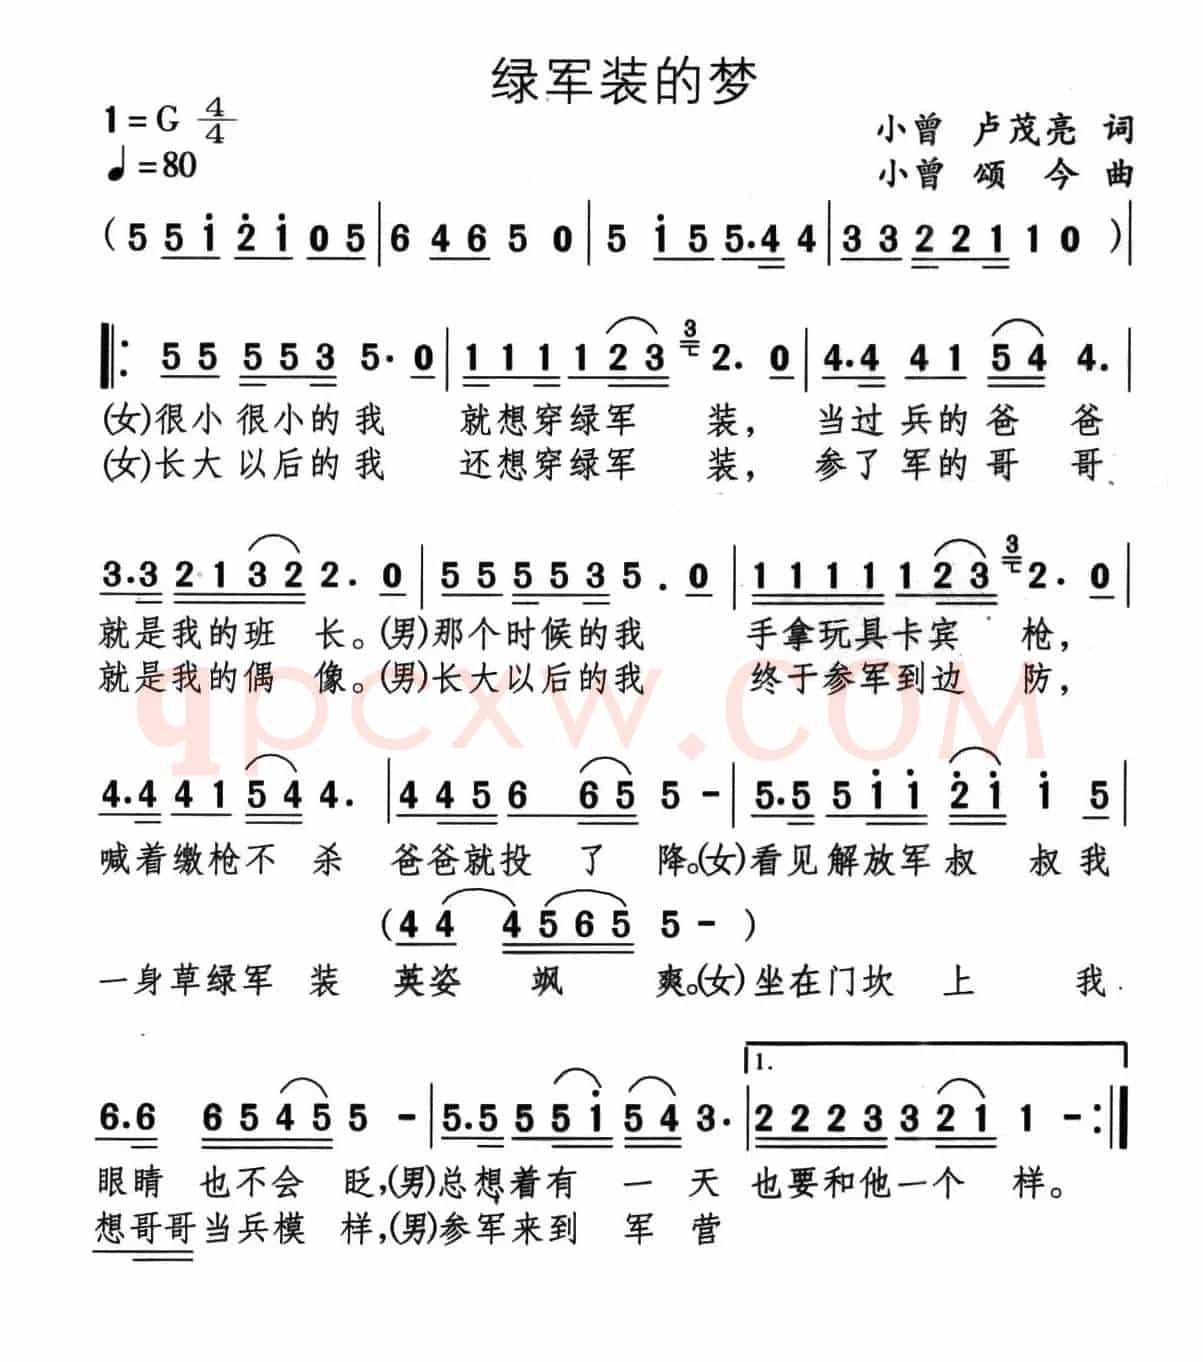 绿军装的梦
1=G 4/4
小曾 卢茂亮 词
♩=80
小曾 颂 今 曲
( 5 5 i 2̇ i 0 5 | 6 4 6 5 0 | 5 i 5 5.4 4 | 3 3 2 2 1 1 0 ) |
‖: 5 5 5 5 3 5. 0 | 1 1 1 1 2 3 3 2. 0 | 4.4 4 1 5 4 4. |
(女)很小 很小的 我 就想穿绿军 装， 当过 兵的 爸 爸
(女)长大 以后的 我 还想穿绿军 装， 参了 军的 哥 哥
3.3 2 1 3 2 2. 0 | 5 5 5 5 3 5. 0 | 1 1 1 1 1 2 3 3 2. 0 |
就是我的班 长。(男)那个时候的我 手拿玩具卡宾 枪，
就是我的偶 像。(男)长大以后的我 终于参军到边 防，
qpcxw.COM
4.4 4 1 5 4 4. | 4 4 5 6 6 5 5 - | 5.5 5 i i 2̇ i i 5 |
喊着缴枪不 杀 爸爸就投 了 降。(女)看见解放军 叔 叔 我
( 4 4 4 5 6 5 5 - )
一身草绿军 装 英姿 飒 爽。(女)坐在门坎 上 我
6.6 6 5 4 5 5 - | 5.5 5 5 i 5 4 3. | 1. 2 2 2 3 3 2 1 1 - :‖
眼睛 也不会 眨，(男)总想着有 一 天 也要和他一个 样。
想哥哥当兵模 样，(男)参军来到 军 营